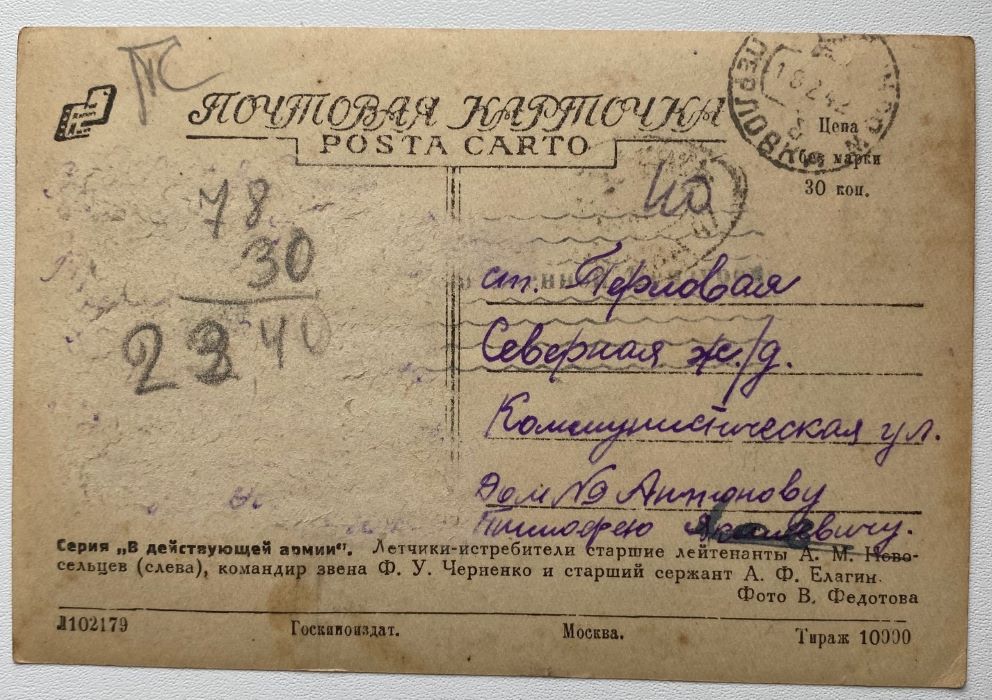 ТС
ПОЧТОВАЯ КАРТОЧКА
POSTA CARTO
18 2 42
Цена
без марки
30 коп.
78
30
23 40
ст. Перловая
Северная ж./д.
Коммунистическая ул.
Дом №9 Антонову
Тимофею
Серия „В действующей армии". Летчики-истребители старшие лейтенанты А. М. Ново-
сельцев (слева), командир звена Ф. У. Черненко и старший сержант А. Ф. Елагин.
Фото В. Федотова
Л102179
Госкиноиздат.
Москва.
Тираж 10000